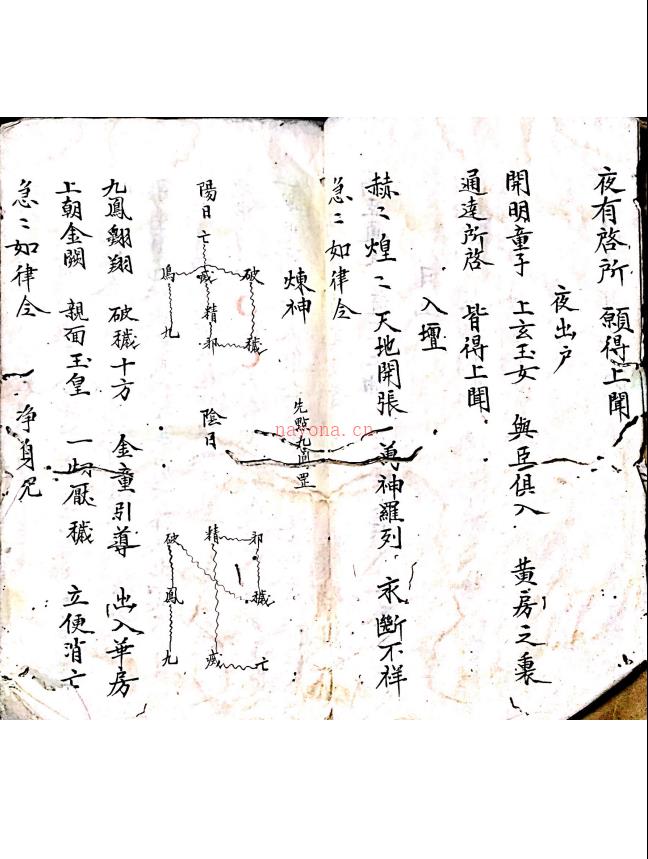 夜有啓所 願得上聞
夜出户
開明童子 上玄玉女 與臣俱入 黄房之裏
通達所啓 皆得上聞
入壇
赫〻煌〻 天地開張 萬神羅列 永斷不祥
急〻如律令
先點九鳳罡
煉神
陽日
亡
鳳 穢 破
精
九 邪 穢
陰日
破 精 邪
鳳 穢
九 穢 亡
九鳳翱翔 破穢十方 金童引導 出入華房
上朝金闕 親面玉皇 一歨厭穢 立便消亡
急〻如律令 净身咒
nayona.cn